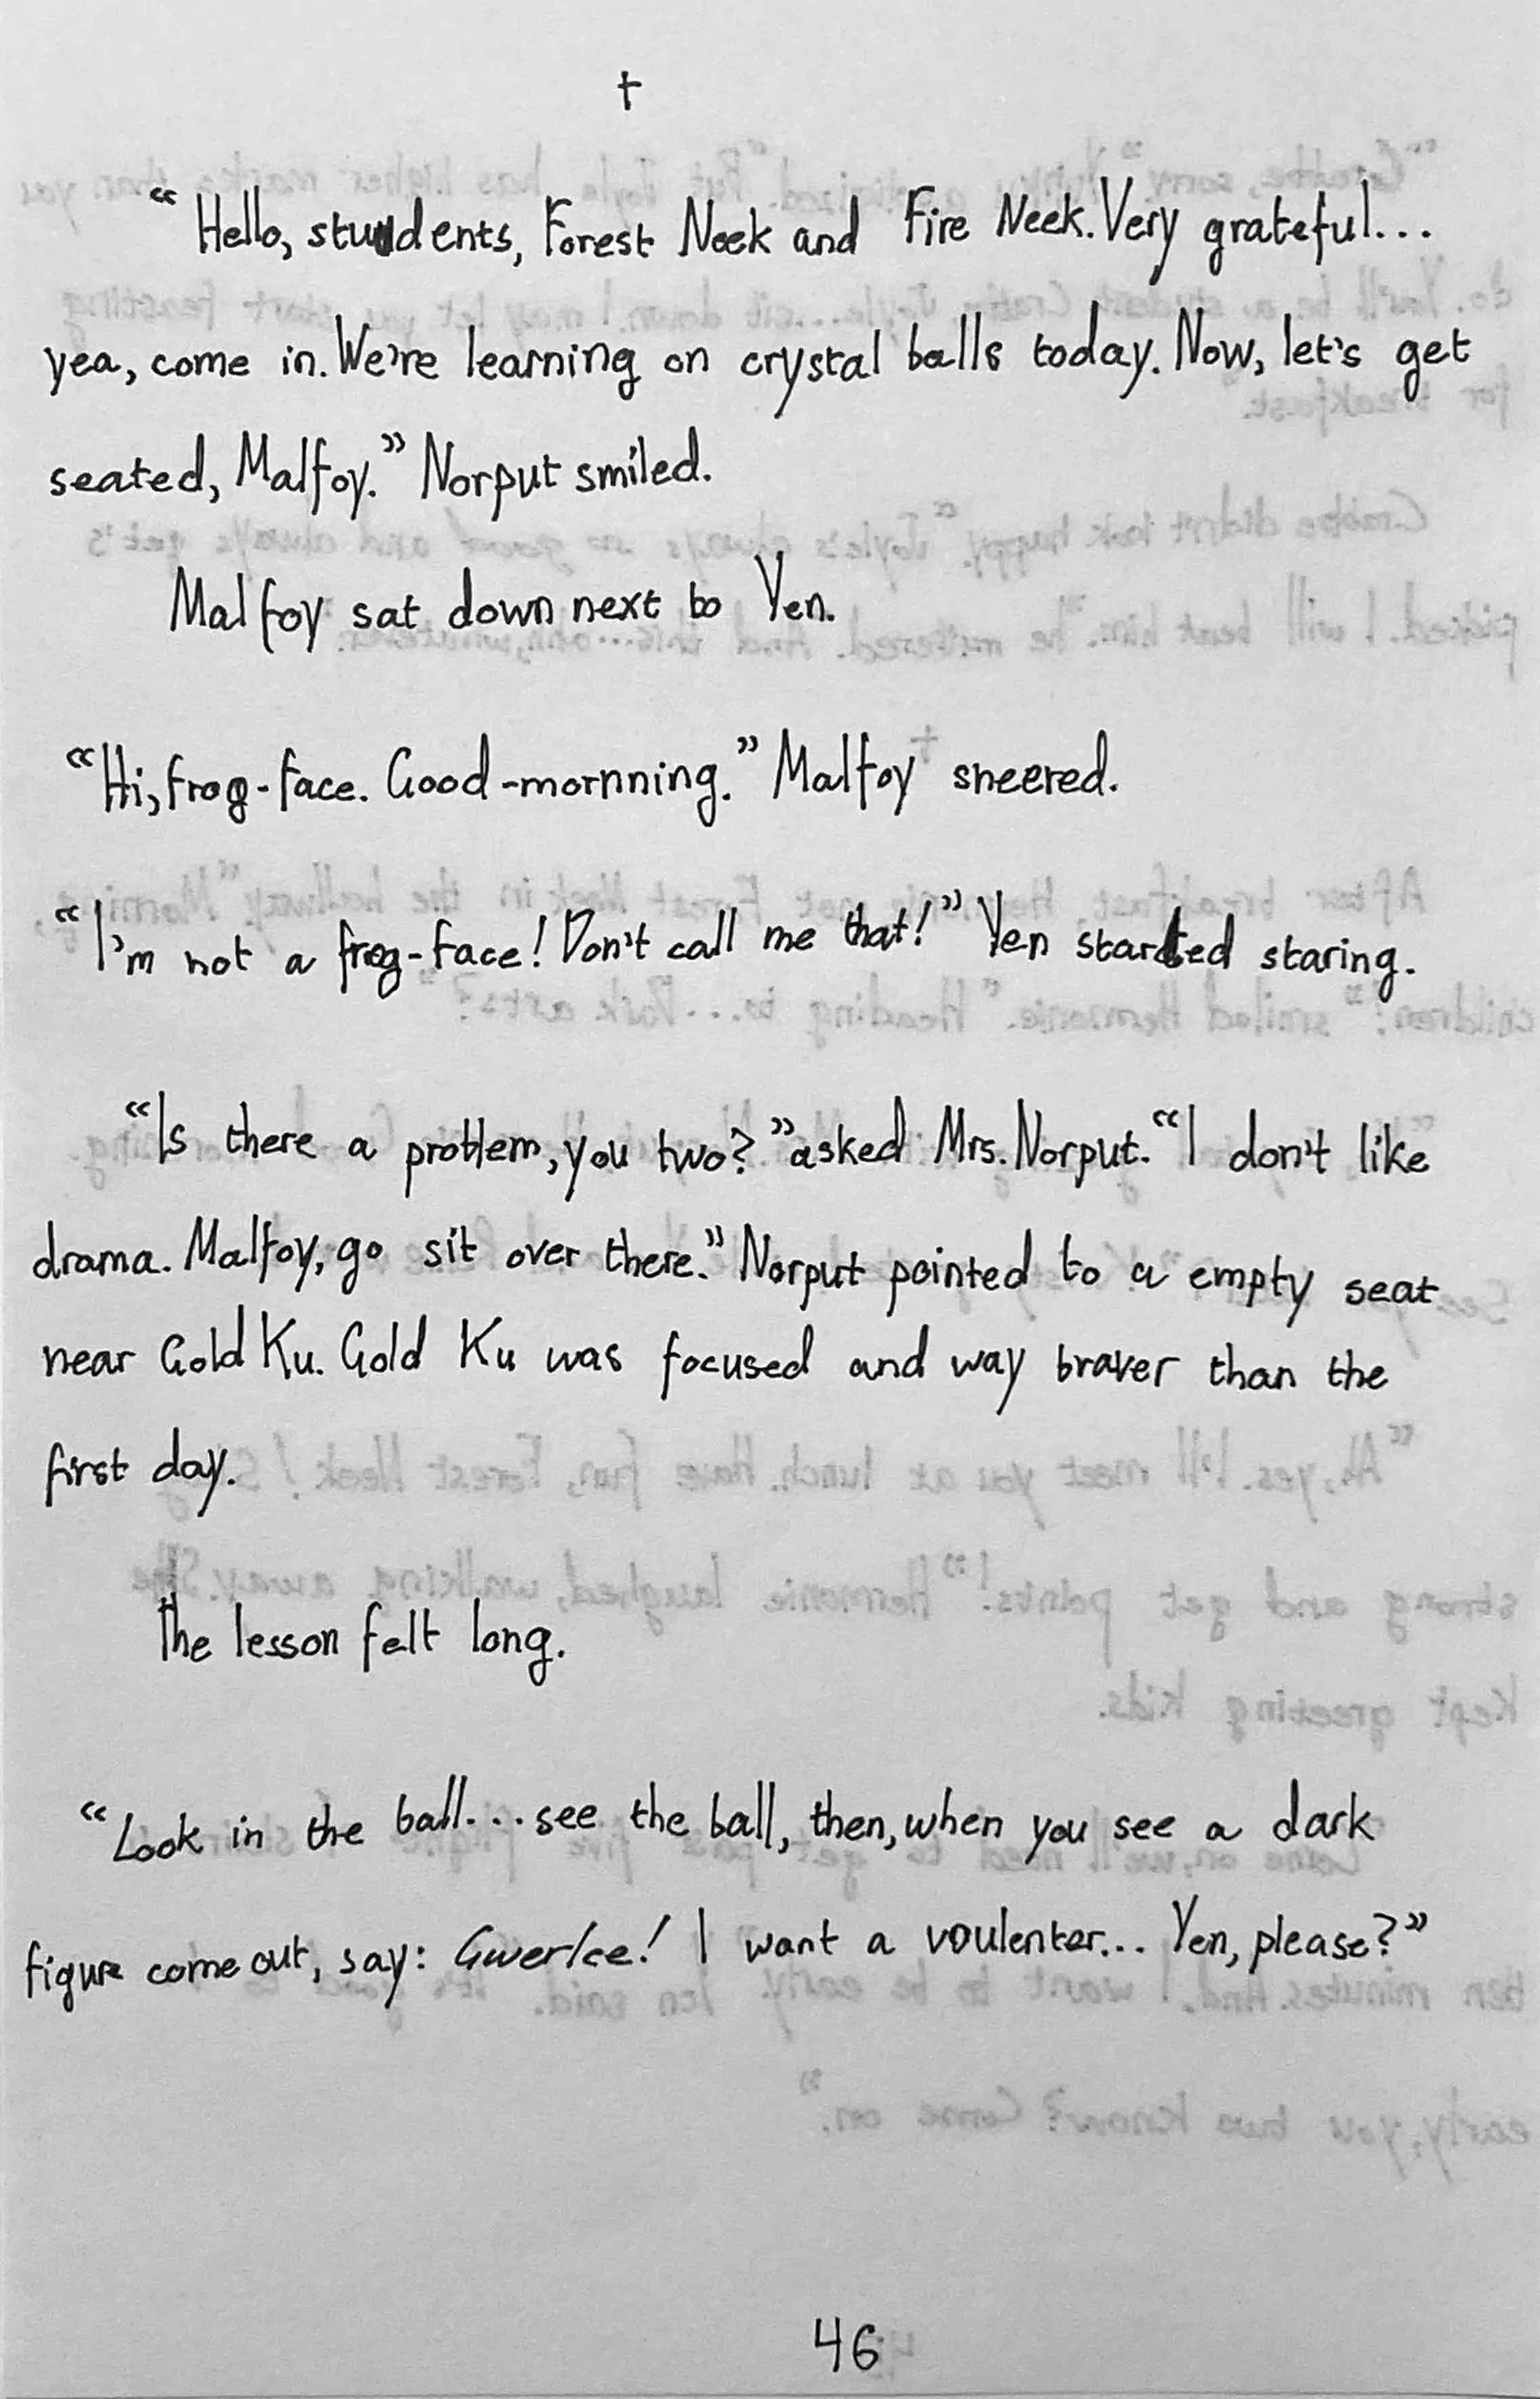 †
“Hello, students, Forest Neek and Fire Neek. Very grateful...
yea, come in. We're learning on crystal balls today. Now, let's get
seated, Malfoy.” Norput smiled.
Malfoy sat down next to Yen.
“Hi, frog-face. Good-mornning.” Malfoy sneered.
“I'm not a frog-face! Don't call me that!” Yen started staring.
“Is there a problem, you two?” asked Mrs. Norput. “I don't like
drama. Malfoy, go sit over there.” Norput pointed to a empty seat
near Gold Ku. Gold Ku was focused and way braver than the
first day.
The lesson felt long.
“Look in the ball... see the ball, then, when you see a dark
figure come out, say: Gwerlce! I want a voulenter... Yen, please?”
46